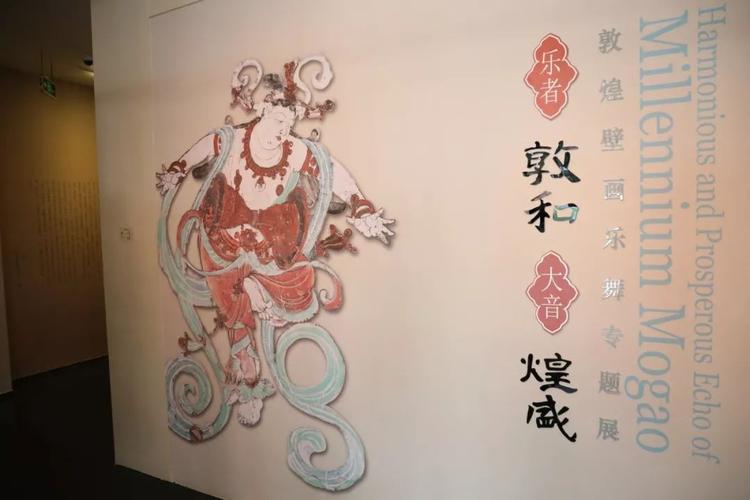 乐者
敦和
大音
煌盛
敦煌壁画乐舞专题展
Harmonious and Prosperous Echo of
Millennium Mogao